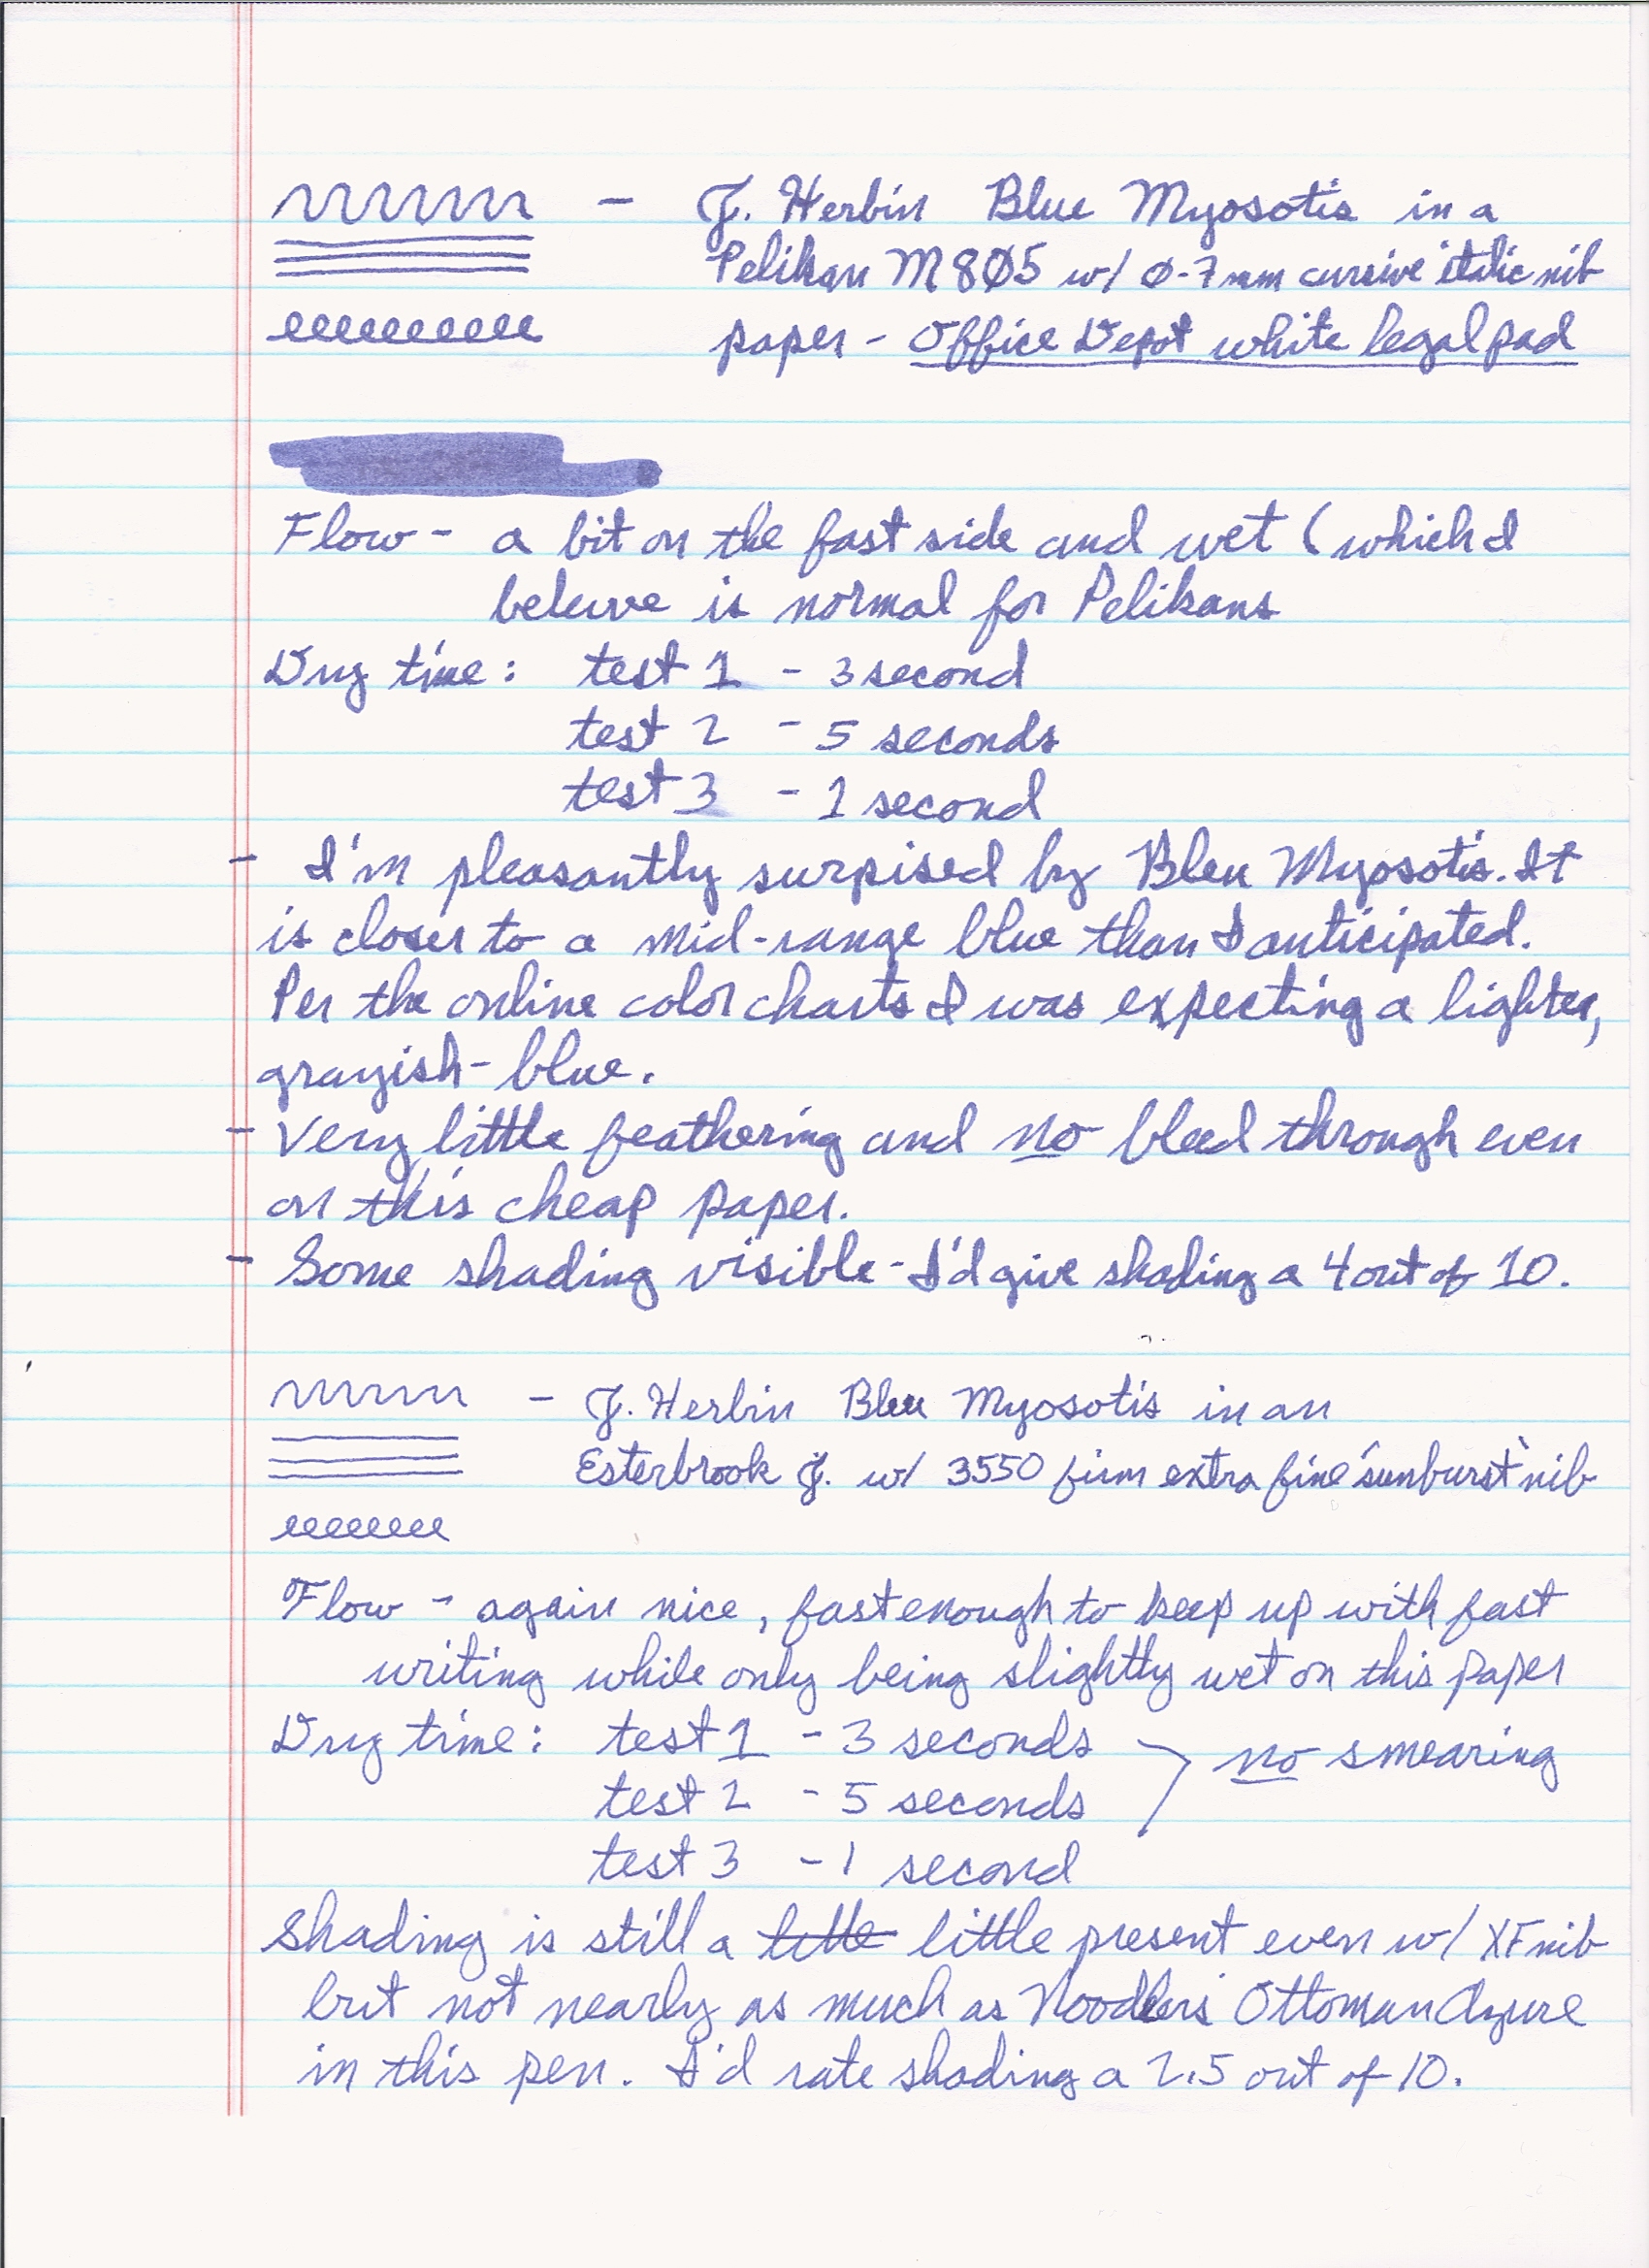 - J. Herbin Blue Myosotis in a
Pelikan M8Ø5 w/ Ø.7mm cursive italic nib
paper - Office Depot white legal pad
Flow - a bit on the fast side and wet (which I
beleive is normal for Pelikans
Dry time: test 1 - 3 second
test 2 - 5 seconds
test 3 - 1 second
- I'm pleasantly surpised by Bleu Myosotis. It
is closer to a mid-range blue than I anticipated.
Per the online color charts I was expecting a lighter,
grayish-blue.
- Very little feathering and no bleed through even
on this cheap paper.
- Some shading visible - I'd give shading a 4 out of 10.
- J. Herbin Bleu Myosotis in an
Esterbrook J. w/ 3550 firm extra fine 'sunburst' nib
Flow - again nice, fast enough to keep up with fast
writing while only being slightly wet on this paper
Dry time: test 1 - 3 seconds
no smearing
test 2 - 5 seconds
test 3 - 1 second
Shading is still a little little present even w/ XF nib
but not nearly as much as Noodlers Ottoman Azure
in this pen. I'd rate shading a 2.5 out of 10.